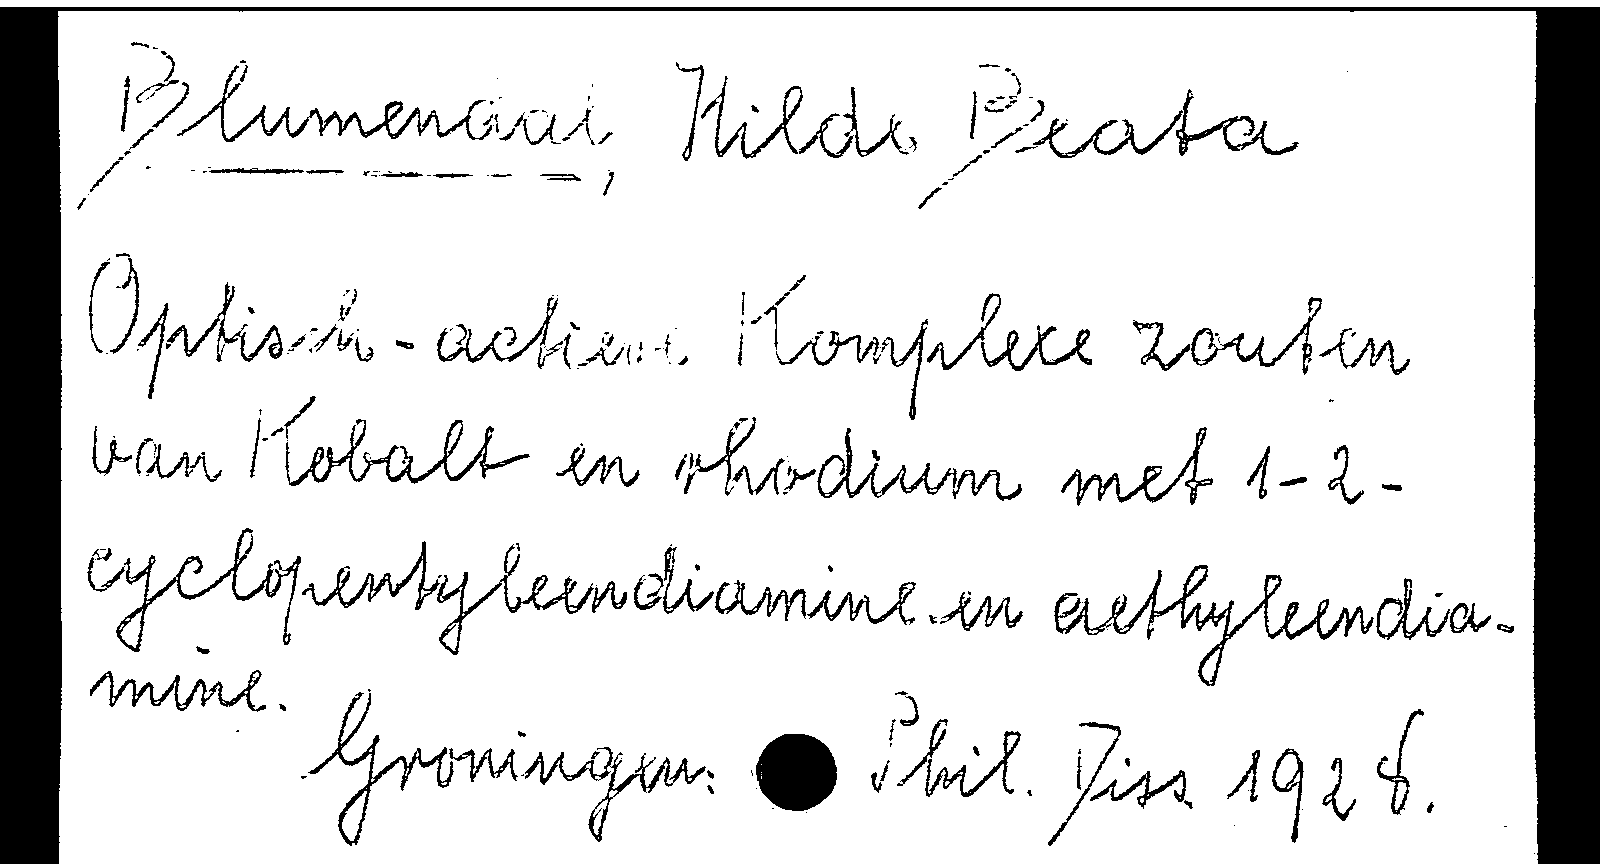 Blumendal, Hilde Beata
Optisch-actieve Komplexe zouten
van Kobalt en rhodium met 1-2-
cyclopentyleendiamine en aethyleendia-
mine.
Groningen: Phil. Diss. 1928.